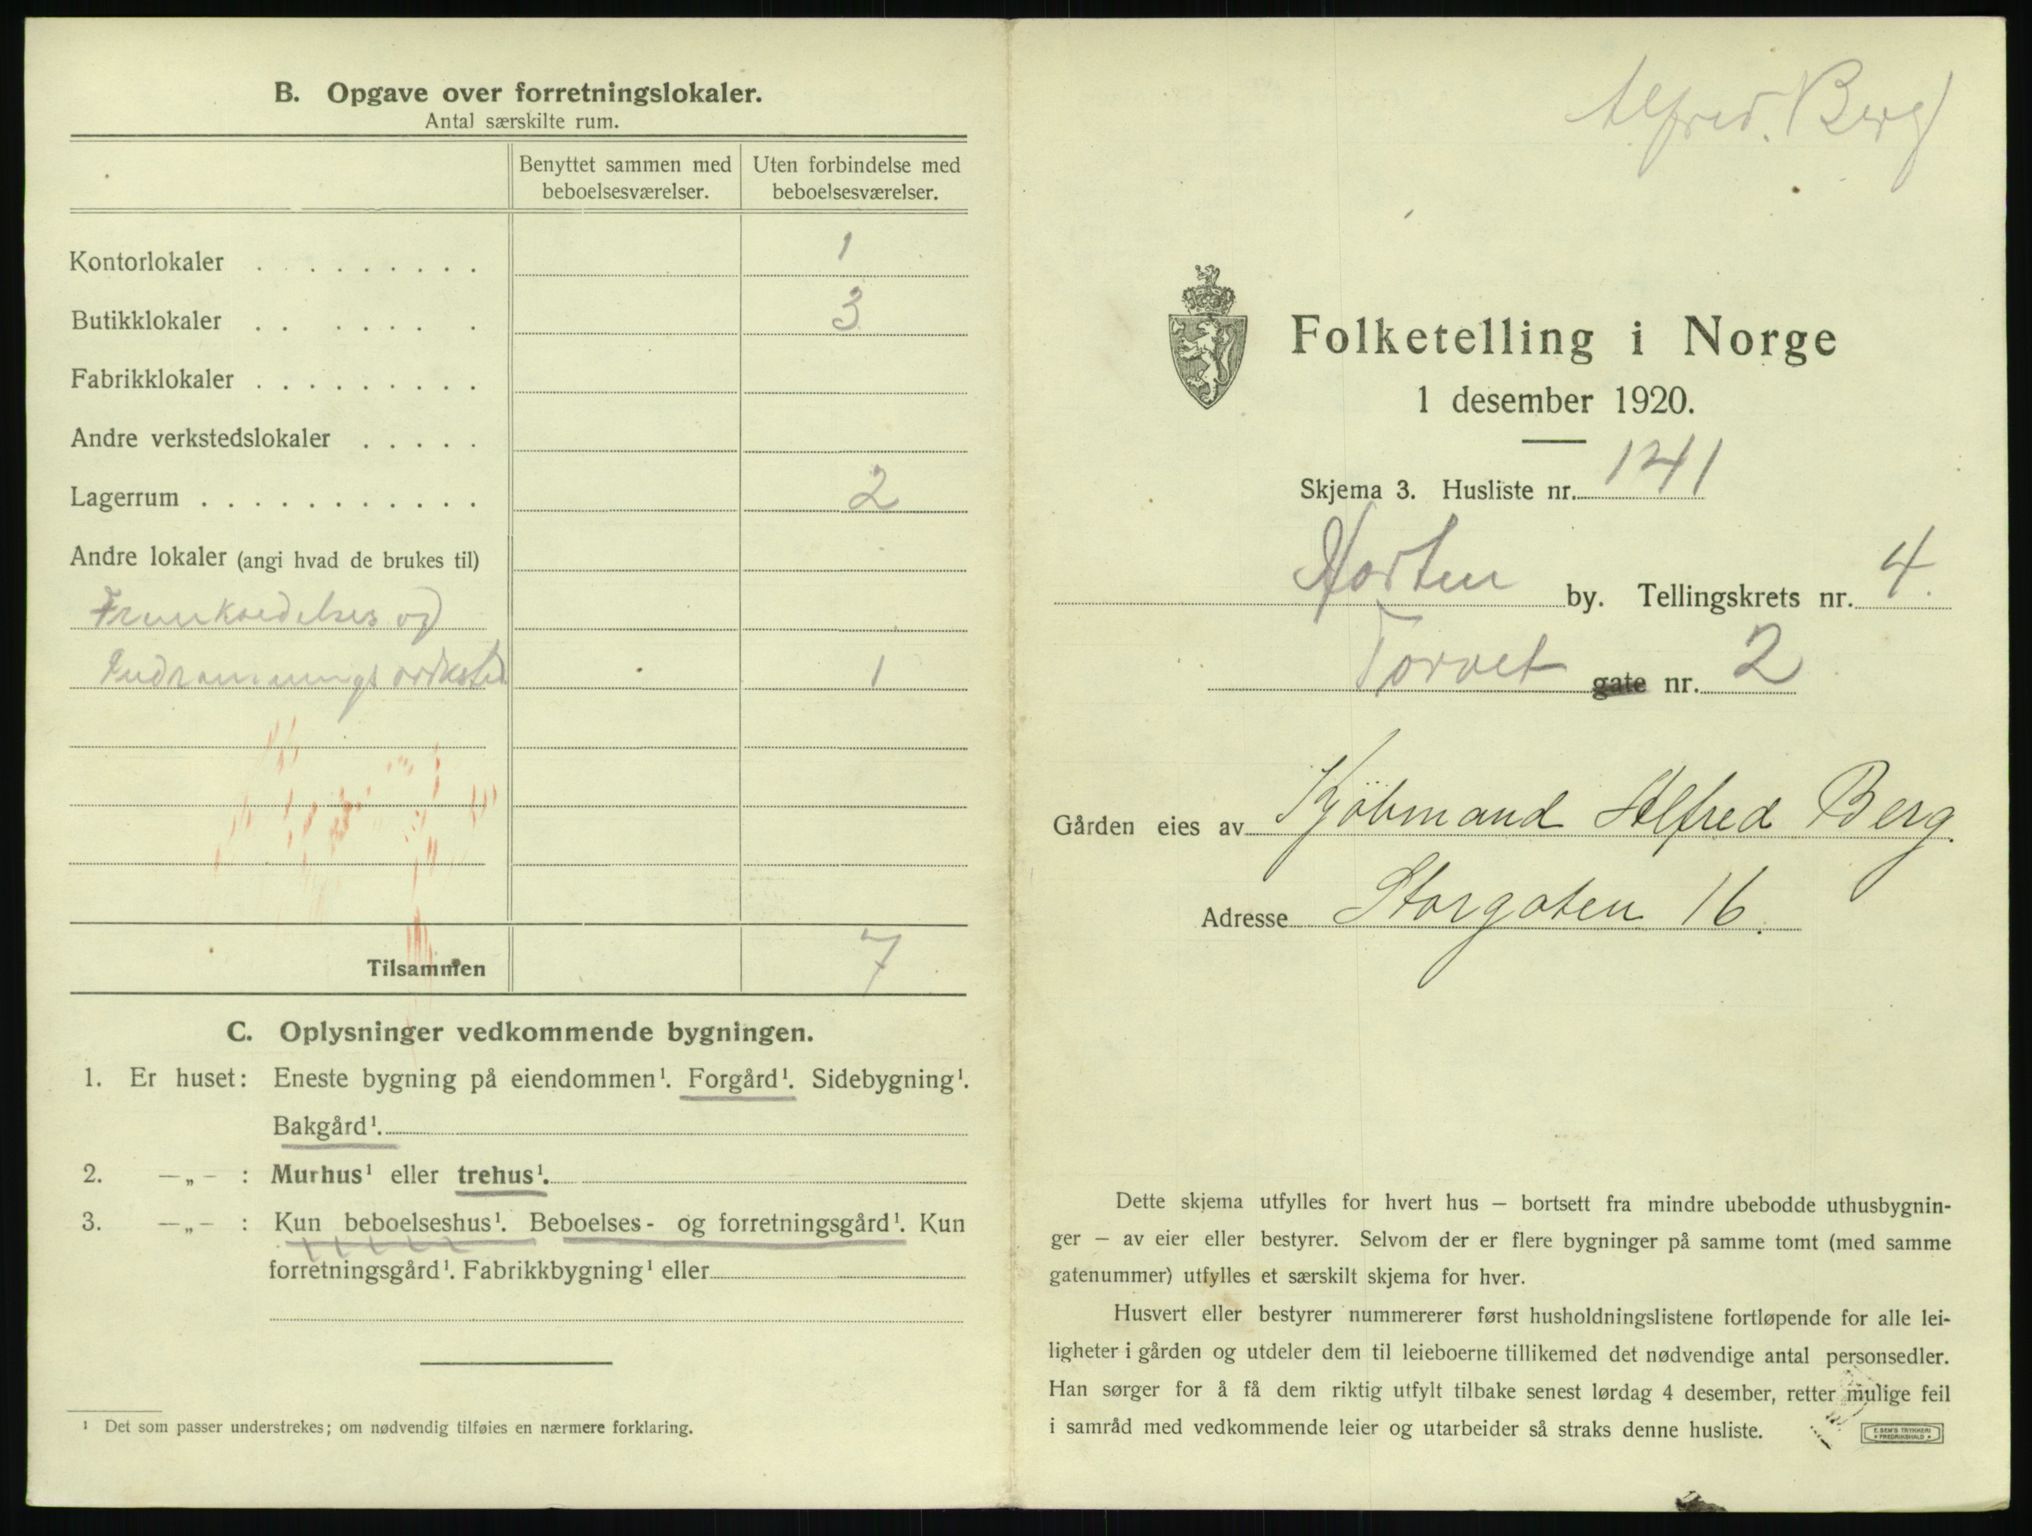 B. Opgave over forretningslokaler.
Antal særskilte rum.
Benyttet sammen med beboelsesværelser.
Uten forbindelse med beboelsesværelser.
Kontorlokaler . . . . . . . . . 1
Butikklokaler . . . . . . . 3
Fabrikklokaler . . . . . . . . .
Andre verkstedslokaler . . . . .
Lagerrum . . . . . . . . . . . 2
Andre lokaler (angi hvad de brukes til)
og
Indramnings 1
Tilsammen 7
C. Oplysninger vedkommende bygningen.
1. Er huset: Eneste bygning på eiendommen¹. Forgård¹. Sidebygning¹.
Bakgård¹.
2. —„— : Murhus¹ eller trehus¹.
3. —„— : Kun beboelseshus¹. Beboelses- og forretningsgård¹. Kun
forretningsgård¹. Fabrikkbygning¹ eller
¹ Det som passer understrekes; om nødvendig tilføies en nærmere forklaring.
Alfred. Berg
Folketelling i Norge
1 desember 1920.
Skjema 3. Husliste nr. 141
Horten by. Tellingskrets nr. 4.
Torvet gate nr. 2
Gården eies av Kjöbmand Alfred Berg.
Adresse Storgaten 16.
Dette skjema utfylles for hvert hus — bortsett fra mindre ubebodde uthusbygnin-
ger — av eier eller bestyrer. Selvom der er flere bygninger på samme tomt (med samme
gatenummer) utfylles et særskilt skjema for hver.
Husvert eller bestyrer nummererer først husholdningslistene fortløpende for alle lei-
ligheter i gården og utdeler dem til leieboerne tillikemed det nødvendige antal personsedler.
Han sørger for å få dem riktig utfylt tilbake senest lørdag 4 desember, retter mulige feil
i samråd med vedkommende leier og utarbeider så straks denne husliste.
E. SEM'S TRYKKERI
FREDRIKSHALD